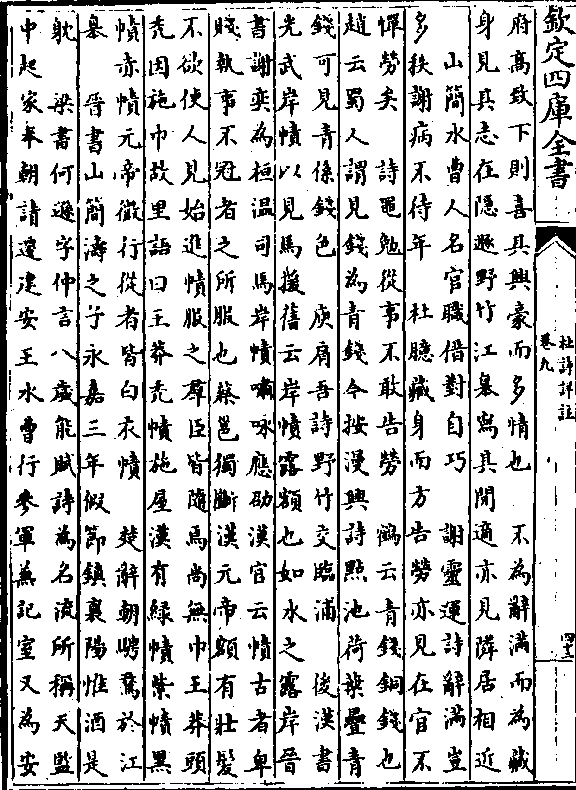 欽定四庫全書
杜詩詳註
卷九
府高致下則喜其興豪而多情也　不為辭滿而為藏
身見其志在隱遯野竹江皋寫其閒適亦見隣居相近
山簡水曹人名官職借對自巧　謝靈運詩辭滿豈
多秩謝病不待年　杜臆藏身而方告勞亦見在官不
憚勞矣　詩黽勉從事不敢告勞　鶴云青錢銅錢也
趙云蜀人謂見錢為青錢今按漫興詩點池荷葉疊青
錢可見青係錢色　庾肩吾詩野竹交臨浦　後漢書
光武岸幘以見馬援舊云岸幘露額也如水之露岸晉
書謝奕為桓溫司馬岸幘嘯咏應劭漢官云幘古者卑
賤執事不冠者之所服也蔡邕獨斷漢元帝額有壯髮
不欲使人見始進幘服之羣臣皆隨焉尚無巾王莽頭
秃因施巾故里語曰王莽秃幘施屋漢有緑幘紫幘黑
幘赤幘元帝微行從者皆白衣幘　楚辭朝騁騖於江
皋　晉書山簡濤之子永嘉三年假節鎮襄陽惟酒是
躭　梁書何遜字仲言八歲能賦詩為名流所稱天監
中起家奉朝請遷建安王水曹行參軍兼記室又為安